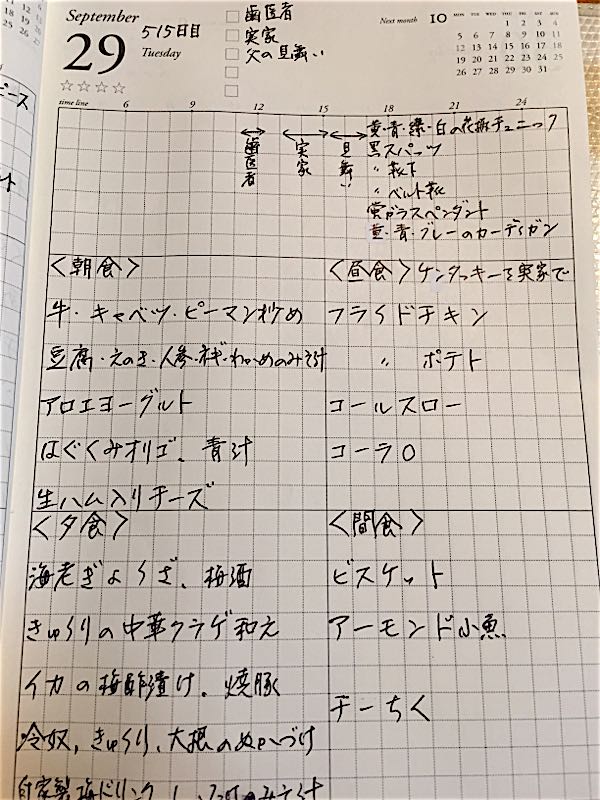 September
29
515日目
Tuesday
☆☆☆☆
歯医者
実家
父の見舞い
Next month 10
MON TUE WED THU FRI SAT SUN
1 2 3 4
5 6 7 8 9 10 11
12 13 14 15 16 17 18
19 20 21 22 23 24 25
26 27 28 29 30 31
time line 6 9 12 15 18 21 24
歯医者
実家
見舞い
黄・青・緑・白の花柄チュニック
黒スパッツ
〃 靴下
〃 ベルト靴
蛍ガラスペンダント
黄・青・グレーのカーデガン
<朝食>
牛・キャベツ・ピーマン炒め
豆腐・えのき・人参・ネギ・わかめのみそ汁
アロエヨーグルト
はぐくみオリゴ、青汁
生ハム入りチーズ
<昼食>ケンタッキーを実家で
フライドチキン
〃 ポテト
コールスロー
コーラ0
<夕食>
海老ぎょうざ、梅酒
きゅうりの中華クラゲ和え
イカの梅酢漬け、焼豚
冷奴、きゅうり、大根のぬかづけ
自家製梅ドリンク
のみそ汁
<間食>
ビスケット
アーモンド小魚
チーちく